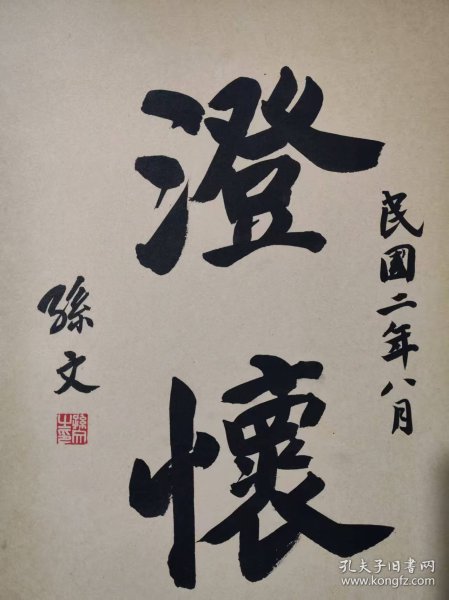 民國二年八月
澄懷
孫文
孫文之印
孔夫子旧书网
www.kongfz.com